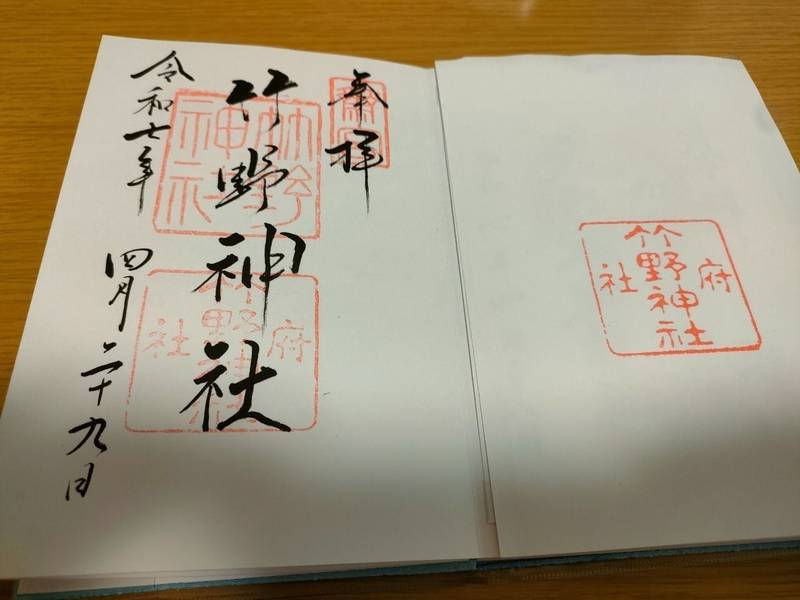 奉拝
竹野神社
令和七年
四月二十九日
齋宮
竹野神社
府社
竹野神社
府社
竹野神社